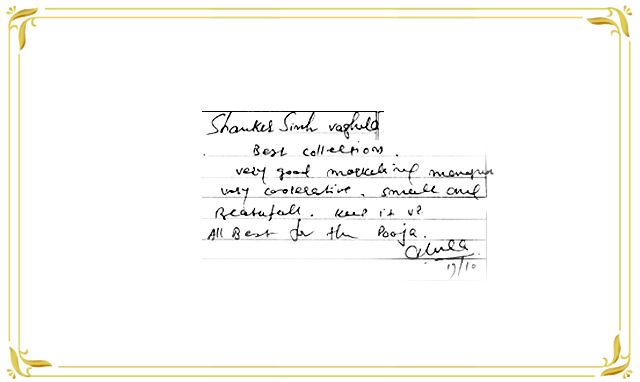 Shanker Sinh vaghela
Best collections.
very good marketing manager
very cooperative. small and
Beautifull. keep it up
All Best for the Pooja.
19/10